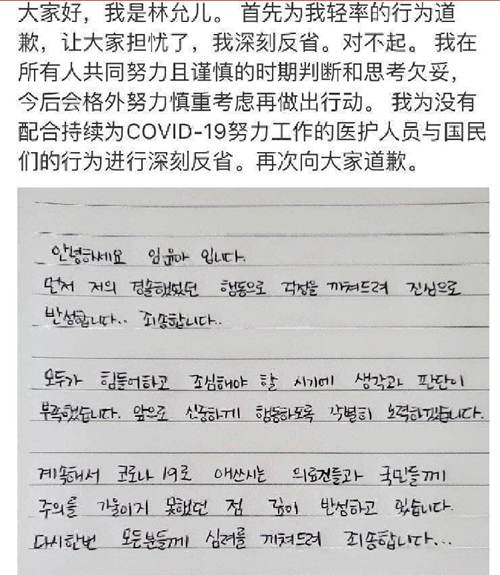 大家好，我是林允儿。 首先为我轻率的行为道
歉，让大家担忧了，我深刻反省。对不起。 我在
所有人共同努力且谨慎的时期判断和思考欠妥，
今后会格外努力慎重考虑再做出行动。 我为没有
配合持续为COVID-19努力工作的医护人员与国民
们的行为进行深刻反省。再次向大家道歉。
안녕하세요 임윤아 입니다.
먼저 저의 경솔했었던 행동으로 걱정을 끼쳐드려 진심으로
반성합니다.. 죄송합니다..
모두가 힘들어하고 조심해야 할 시기에 생각과 판단이
부족했습니다. 앞으로 신중하게 행동하도록 각별히 노력하겠습니다.
계속해서 코로나 19로 애쓰시는 의료진들과 국민들께
주의를 기울이지 못했던 점 깊이 반성하고 있습니다.
다시한번 모든분들께 심려를 끼쳐드려 죄송합니다...